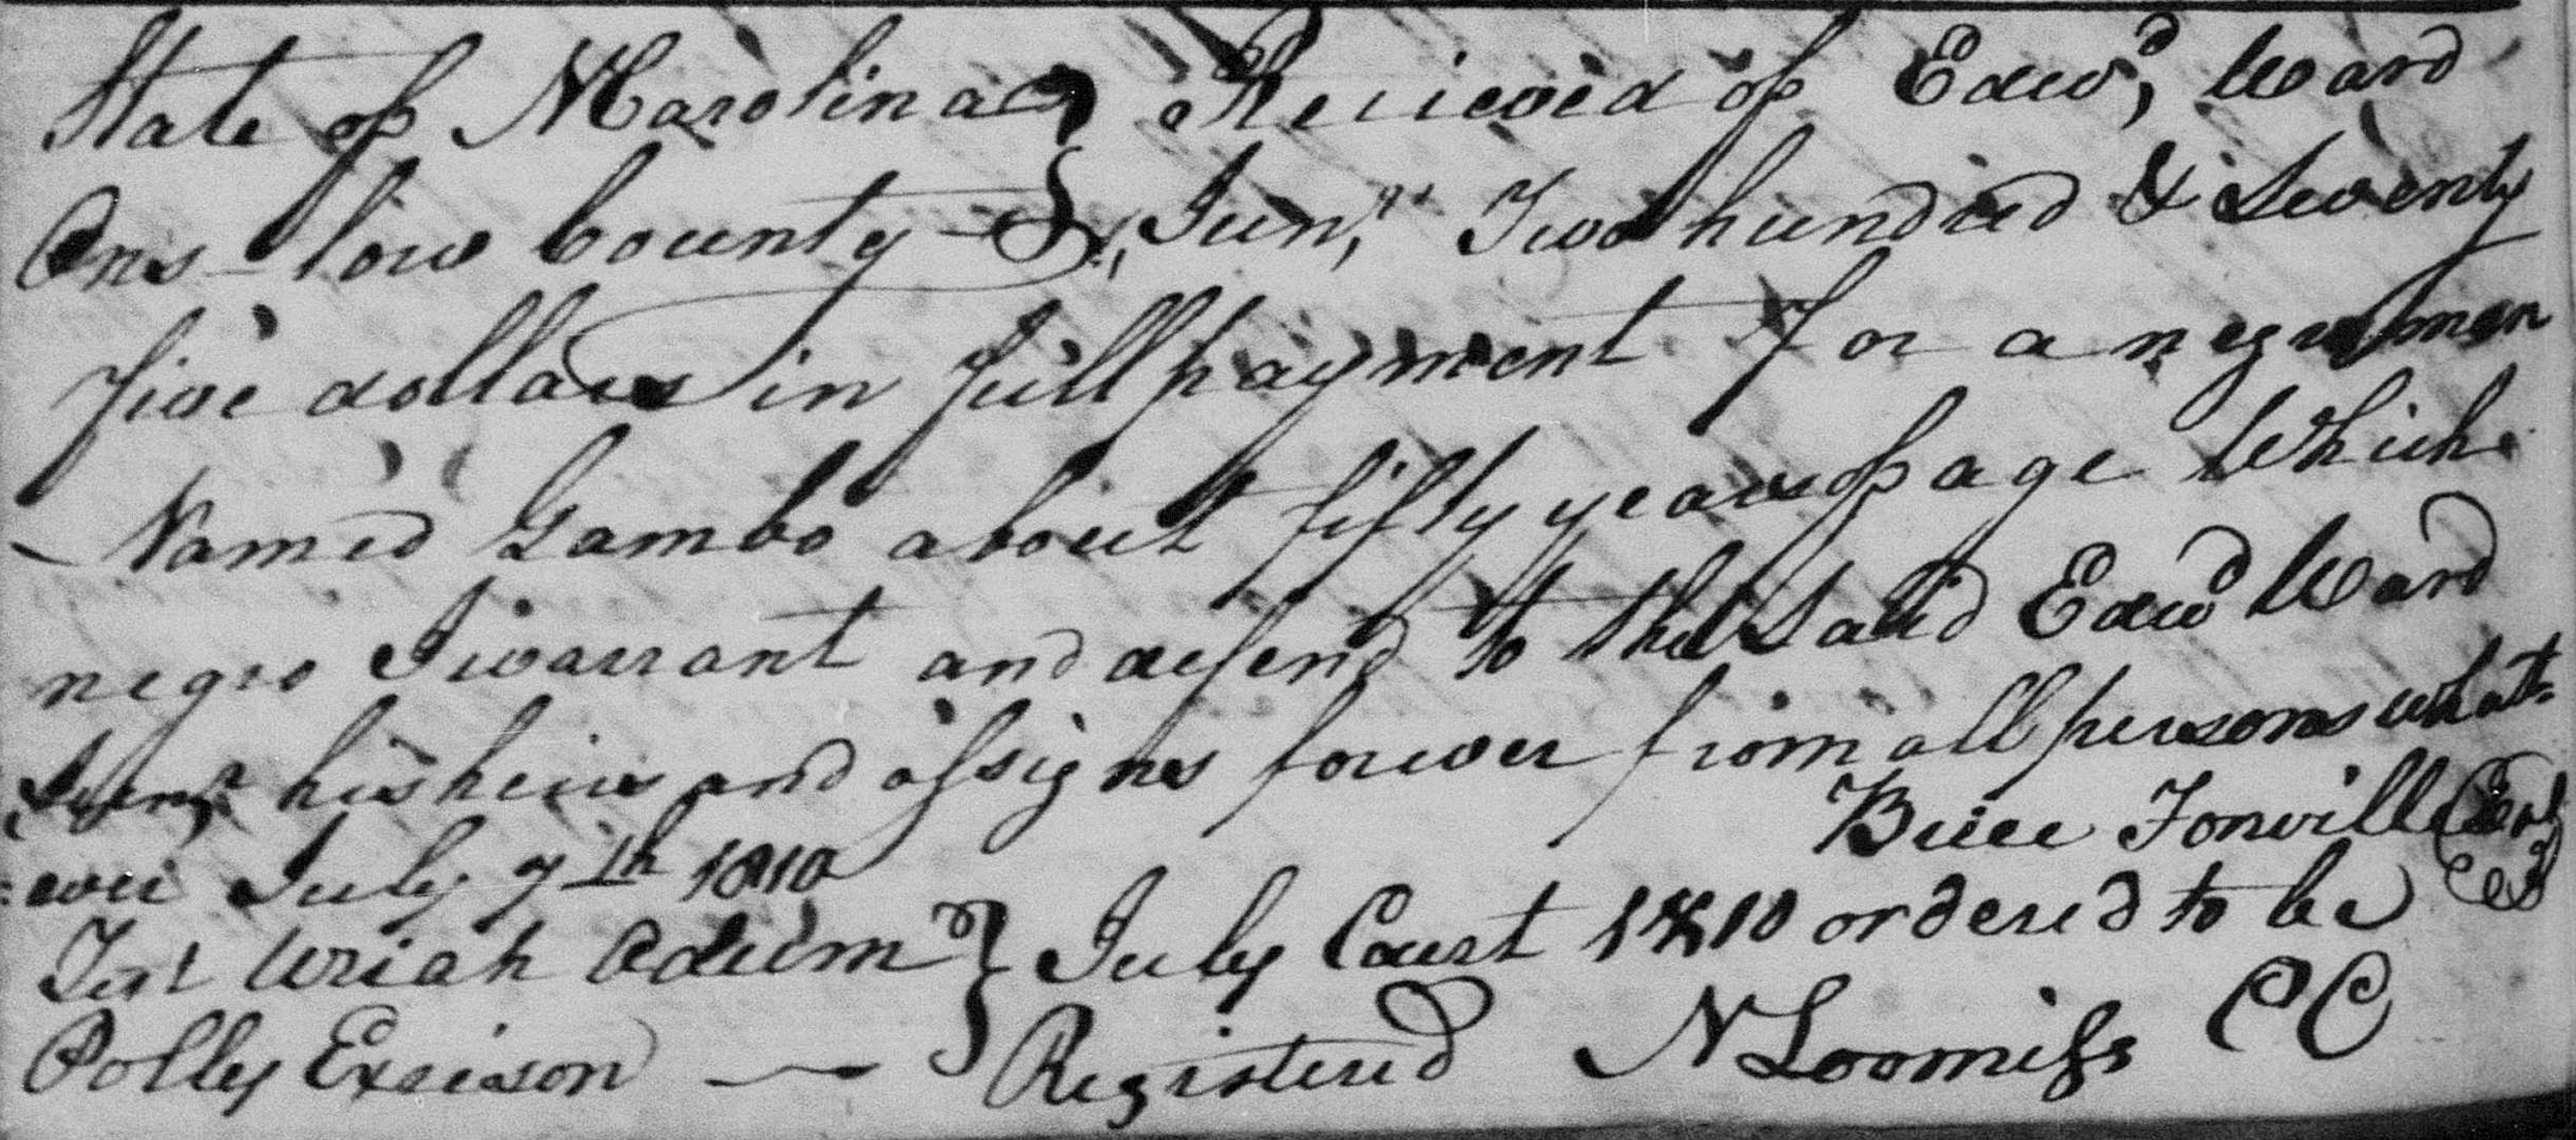 State of N Carolina } Received of Edwd, Ward
Ons-low County } Junr, Two hundred & Seventy
five dollars in full payment for a negro man
Named Gambo about fifty years of age Which
negro I warrant and defend to the Said Edwd Ward
Junr his heirs and assigns forever from all persons what-
:ever July 7th 1810 Brice Fonville
Test Uriah Odum } July Court 1810 ordered to be
Polly Exsieson — } Registered N Loomiss CC